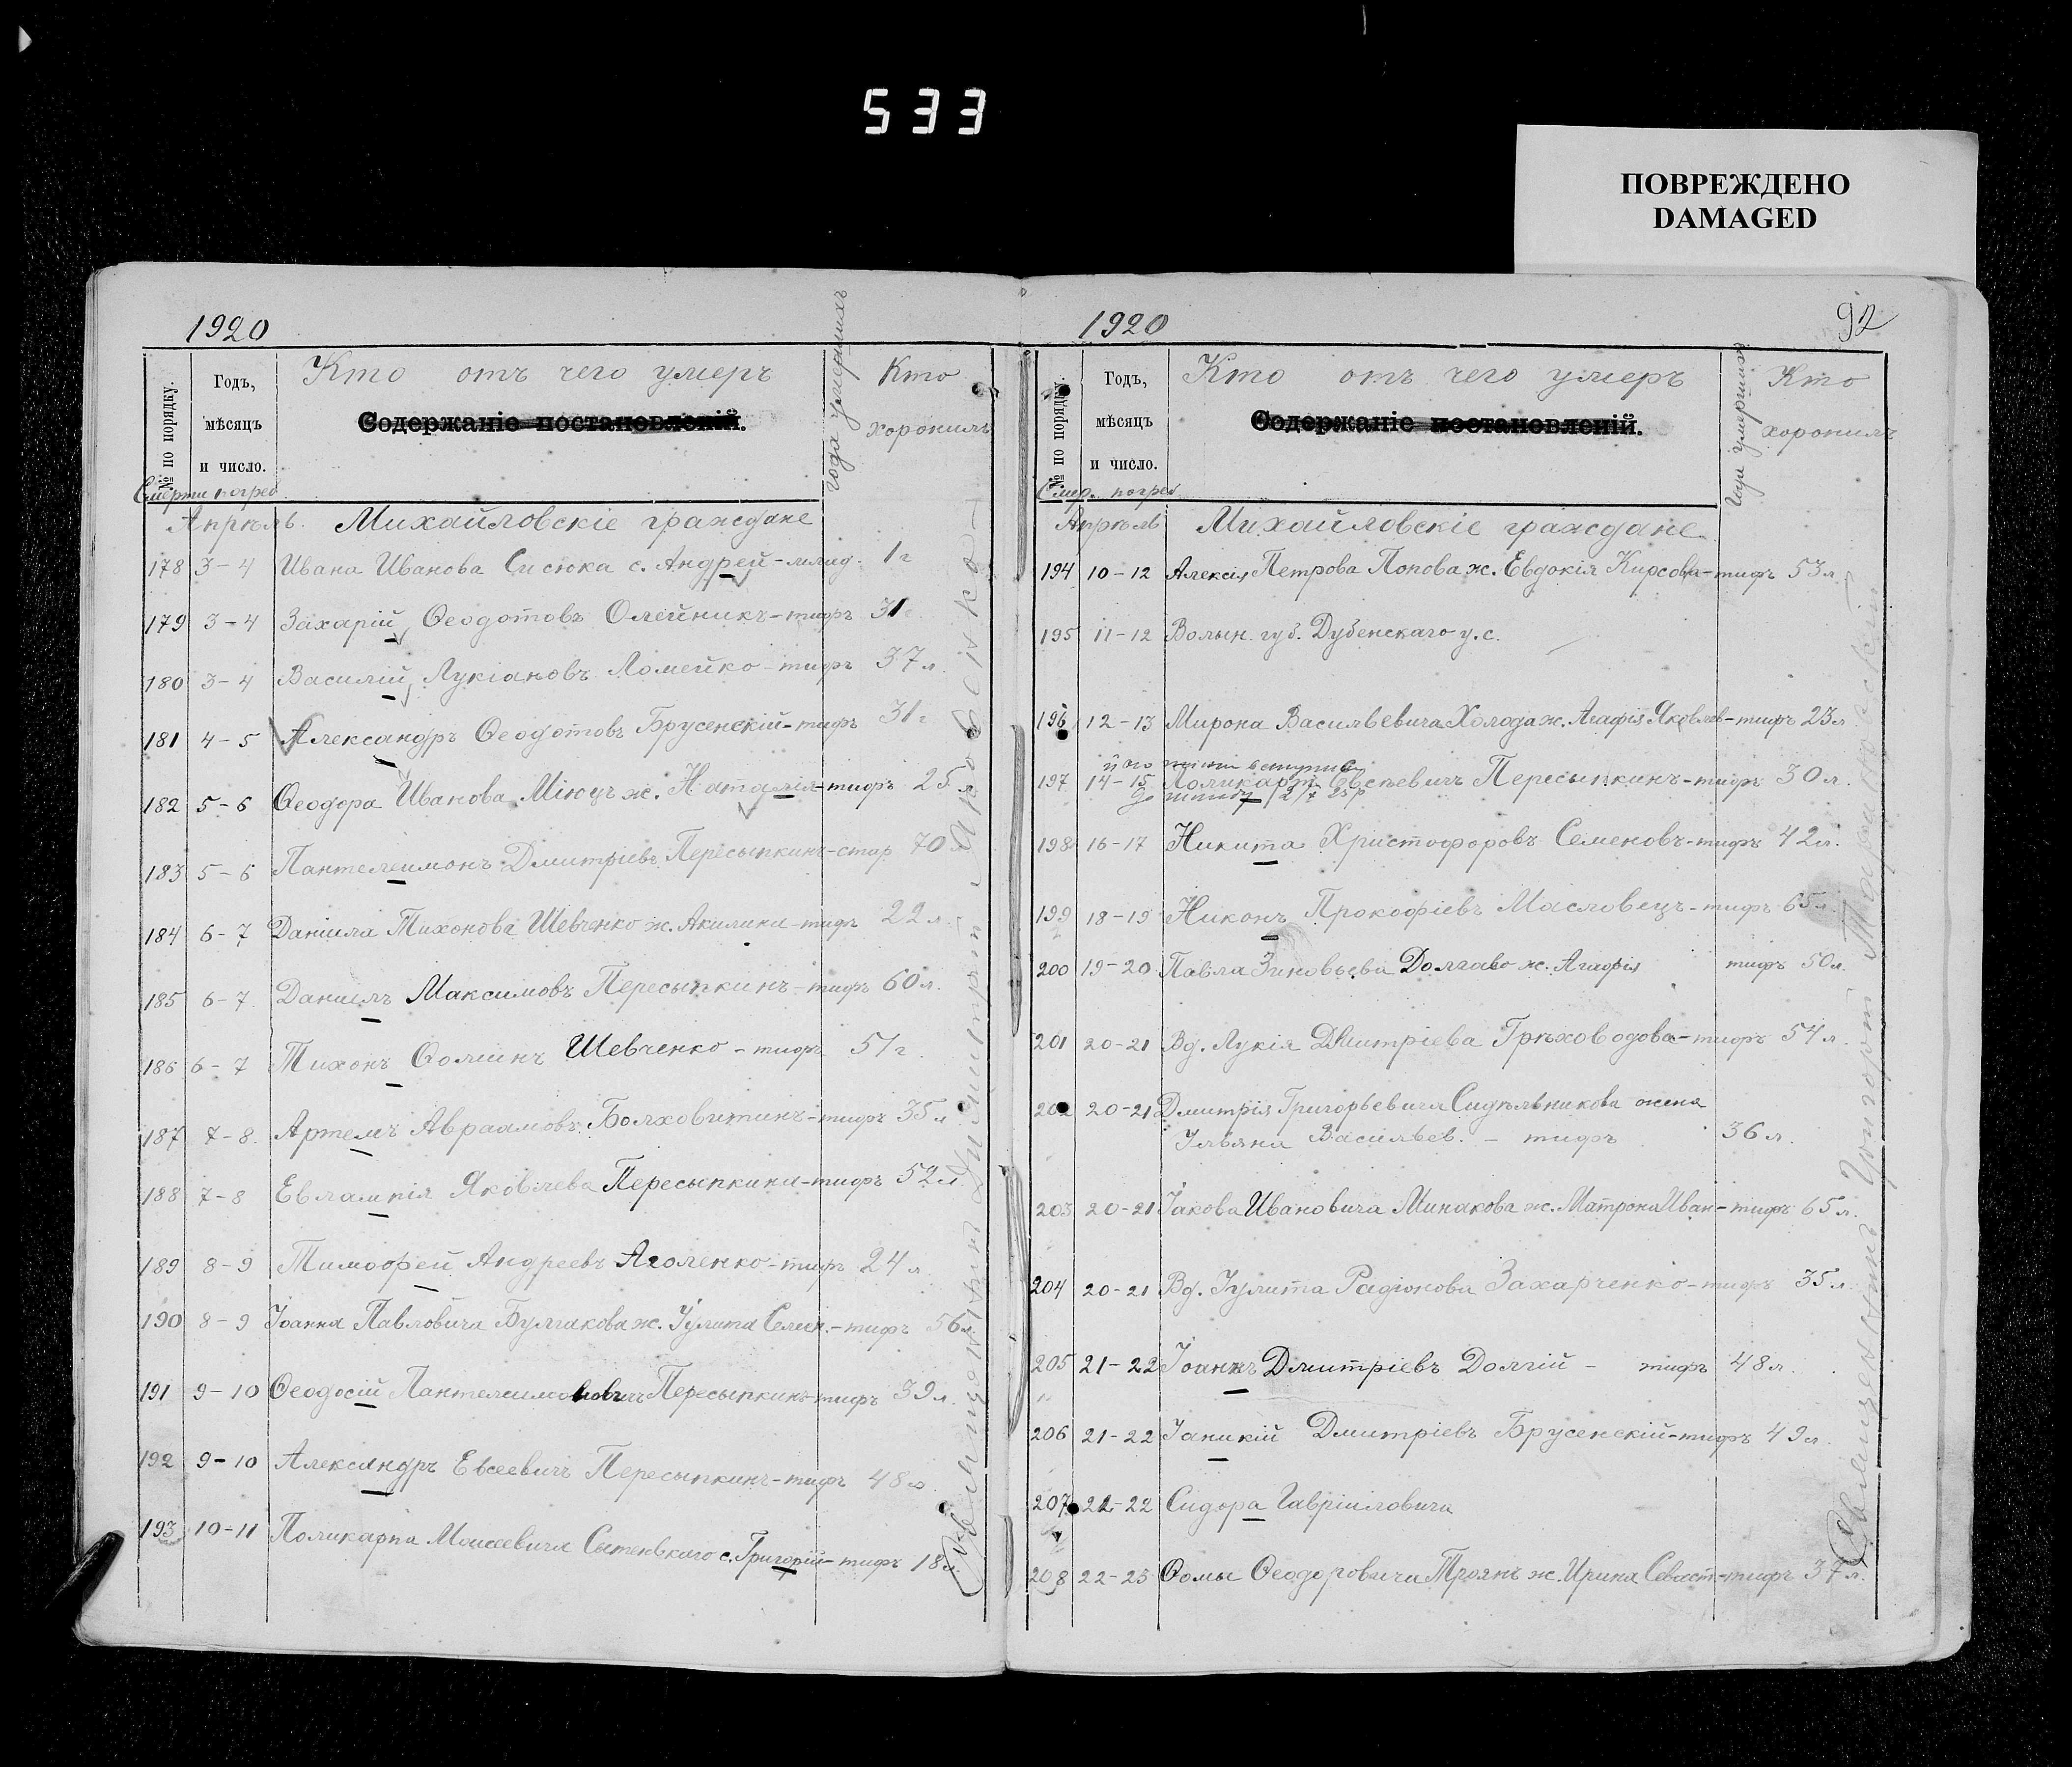 533
ПОВРЕЖДЕНО
DAMAGED
1920
№ по порядку.
Годъ,
мѣсяцъ
и число.
Кто отъ чего умеръ
Содержаніе постановленій.
года умершихъ
Кто
хоронилъ
Смерти погреб
Апрѣль. Михайловскіе граждане
178 3-4 Ивана Иванова Сисюка с. Андрей - млад. 1 г
179 3-4 Захарій Ѳеодотовъ Олейникъ - тифъ 31
180 3-4 Василій Лукіановъ Ломейко - тифъ 37 л.
181 4-5 Александръ Ѳеодотовъ Брусенскій - тифъ 31 г
182 5-6 Ѳеодора Иванова Міюцъ ж. Наталія - тифъ 25 л
183 5-6 Пантелеимонъ Дмитріевъ Пересыпкинъ - стар 70
184 6-7 Даніила Тихонова Шевченко ж. Акилина - тифъ 22 л.
185 6-7. Даниилъ Максимовъ Пересыпкинъ - тифъ 60 л.
186 6-7 Тихонъ Ѳоминъ Шевченко - тифъ 51 г.
187 7-8. Артемъ Авраамовъ Болховитинъ - тифъ 35 л
188 7-8 Евлампія Яковлева Пересыпкина - тифъ 52 л
189 8-9 Тимоѳей Андреевъ Аголенко - тифъ 24 л.
190 8-9 Іоанна Павловича Булгакова ж. Іулита Семен. - тифъ 56 л.
191 9-10 Ѳеодосій Пантелеимоновичъ Пересыпкинъ - тифъ 39 л.
192 9-10 Александръ Евсеевичъ Пересыпкинъ - тифъ 48 л.
193 10-11 Поликарпа Моисеевича с. Григорій - тифъ 18 л.
Священникъ Димитрій
1920
92
№ по порядку.
Годъ,
мѣсяцъ
и число.
Кто отъ чего умеръ
Содержаніе постановленій.
умершихъ
Кто
хоронилъ
Смер. погреб
Апрѣль Михайловскіе граждане.
194 10-12 Алексія Петрова Попова ж. Евдокія Кирсова - тифъ 53 л.
195 11-12 Волын. губ. Дубенскаго у. с.
196 12-13 Мирона Васильевича Холода ж. Агафія Яковлев - тифъ 23 л
197 14-15 Поликарпъ Евсѣевичъ Пересыпкинъ - тифъ 30 л.
198 16-17 Никита Христофоровъ Семеновъ - тифъ 42 л.
199 18-19 Никонъ Прокофіевъ Масловецъ - тифъ 65 л.
200 19-20 Павла Зиновьева Долгаго ж. Агафія тифъ 50 л.
201 20-21 Вд. Лукія Дмитріева Грѣховодова - тифъ 54 л.
202 20-21 Дмитрія Григорьевича Сидѣльникова жена
Ульяна Васильев. - тифъ 36 л.
203 20-21 Іакова Ивановича Минакова ж. Матрона Иван - тифъ 65 л.
204 20-21 Вд. Іулита Радіонова Захарченко - тифъ 35 л.
205 21-22 Іоаннъ Дмитріевъ Долгій - тифъ 48 л.
206 21-22 Іаникій Дмитріевъ Брусенскій - тифъ 49 л.
207 21-22 Сидора Гавріиловича
208 22-23 Ѳомы Ѳеодоровича Троянъ ж. Ирина Севаст - тифъ 37 л.
Священникъ Григорій